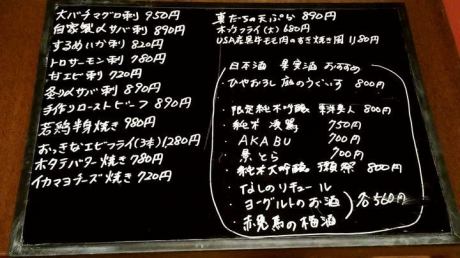 大バチマグロ刺 950円
自家製〆サバ刺 890円
するめいか刺 820円
トロサーモン刺 780円
甘エビ刺 720円
炙り〆サバ刺 890円
手作りローストビーフ 890円
若鶏半身焼き 980円
おっきなエビフライ(3本) 1280円
ホタテバター焼き 780円
イカマヨチーズ焼き 720円
真だちの天ぷら 890円
ホッケフライ(大) 680円
USA産黒牛モモ肉のすき焼き風 1180円
日本酒 果実酒 おすすめ
・ひやおろし 庭のうぐいす 800円
・限定純米吟醸 東洋美人 800円
・純米 浅黒 750円
・AKABU 700円
・景とら 700円
・純米大吟醸 獺祭 800円
・なしのリキュール
・ヨーグルトのお酒
・赤兎馬の梅酒
各560円